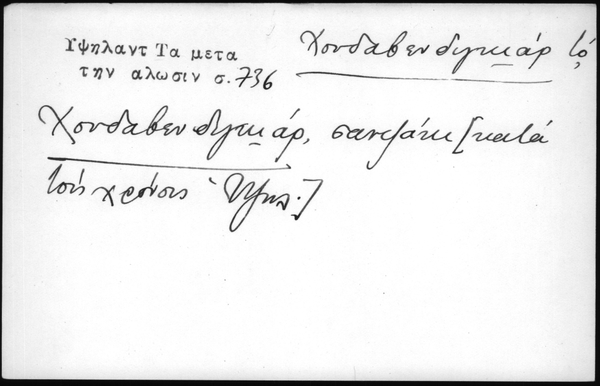 Υψηλαντ Τα μετα
την αλωσιν σ. 736
Χουδαβενδιγκ̲άρ τό
Χουδαβενδιγκ̲άρ, σαντζάκι [κατά
τούς χρόνους Ὑψηλ.]